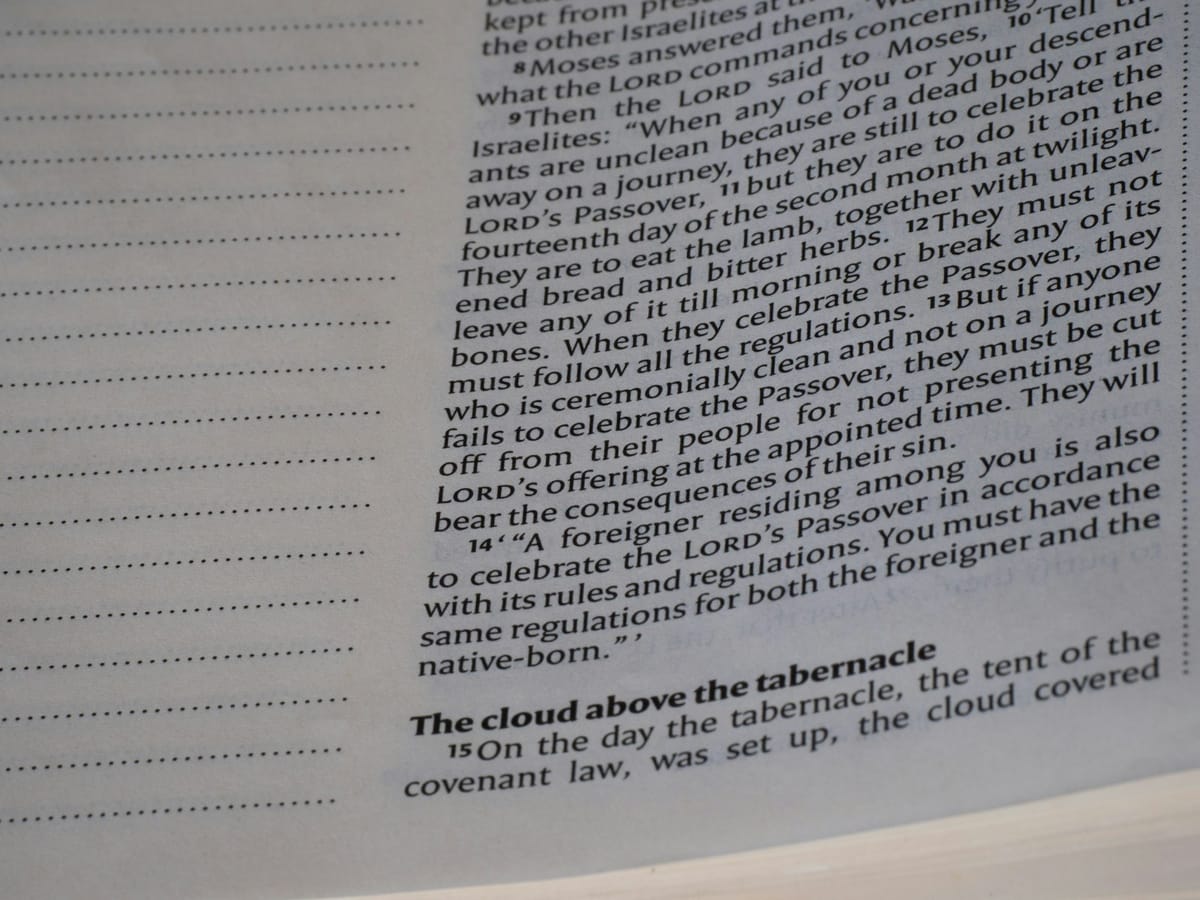 kept from
the other Israelites at
⁸Moses answered them,
what the LORD commands concerning
⁹Then the LORD said to Moses, ¹⁰‘Tell
Israelites: “When any of you or your descend-
ants are unclean because of a dead body or are
away on a journey, they are still to celebrate the
LORD’s Passover, ¹¹but they are to do it on the
fourteenth day of the second month at twilight.
They are to eat the lamb, together with unleav-
ened bread and bitter herbs. ¹²They must not
leave any of it till morning or break any of its
bones. When they celebrate the Passover, they
must follow all the regulations. ¹³But if anyone
who is ceremonially clean and not on a journey
fails to celebrate the Passover, they must be cut
off from their people for not presenting the
LORD’s offering at the appointed time. They will
bear the consequences of their sin.
¹⁴‘ “A foreigner residing among you is also
to celebrate the LORD’s Passover in accordance
with its rules and regulations. You must have the
same regulations for both the foreigner and the
native-born.” ’
The cloud above the tabernacle
¹⁵On the day the tabernacle, the tent of the
covenant law, was set up, the cloud covered